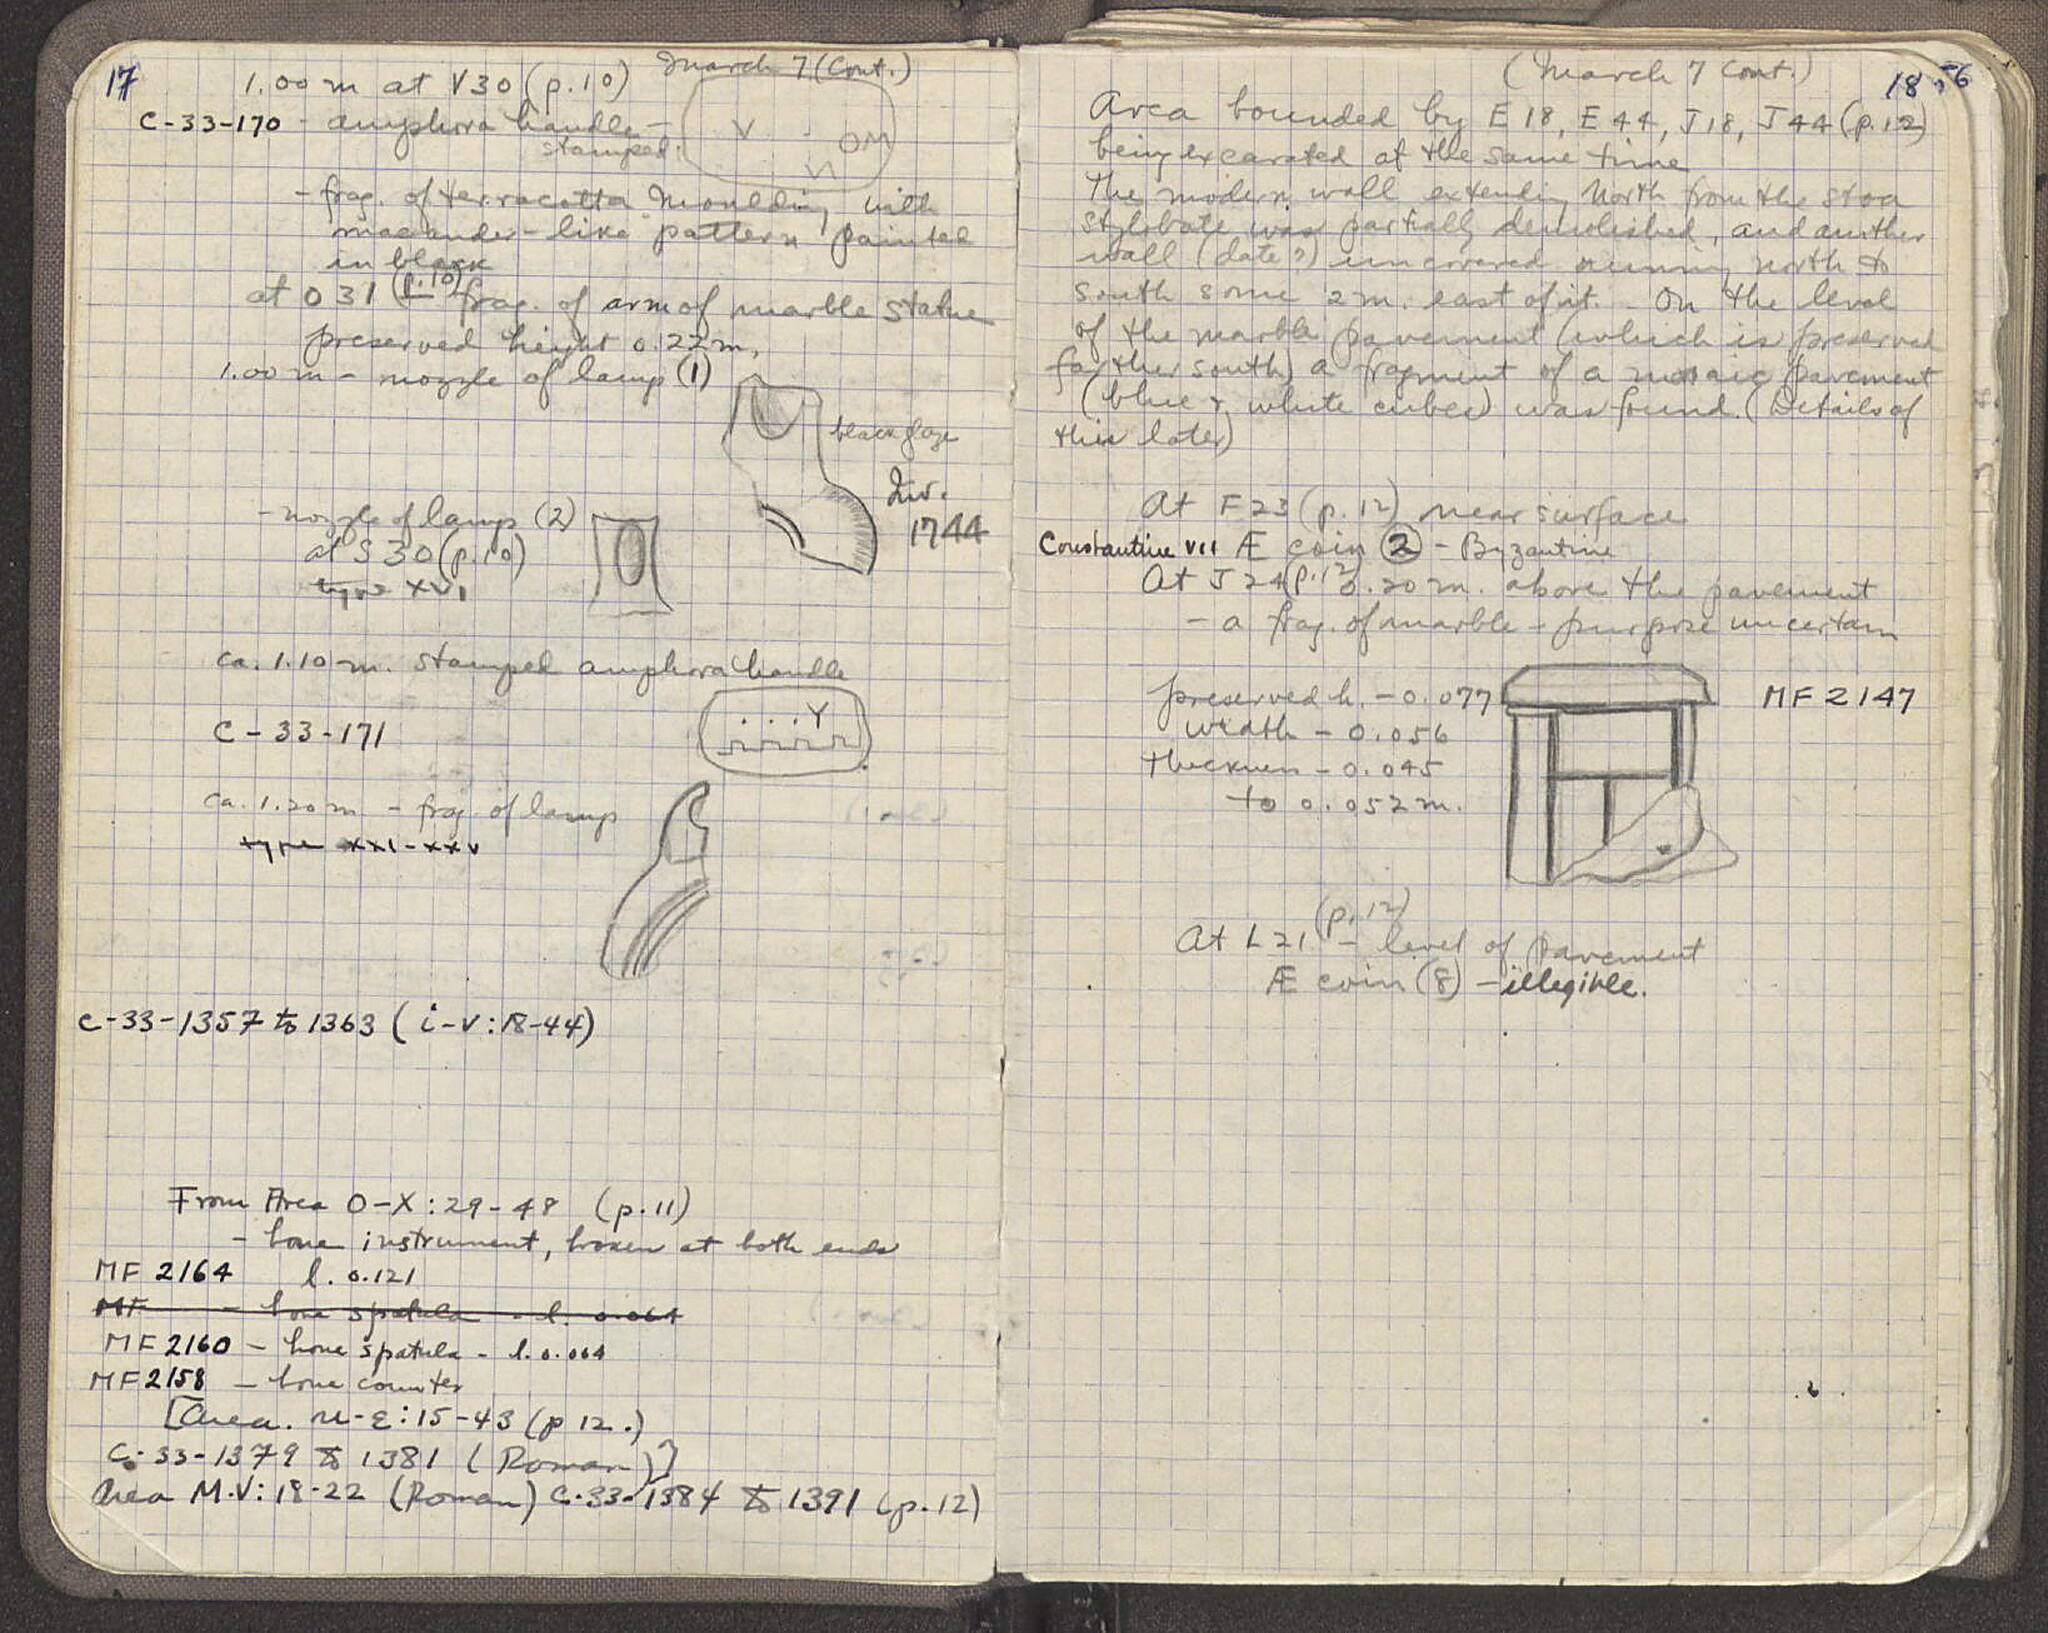 17
March 7 (Cont.)
1.00 m at V30 (p.10)
C-33-170 - amphora handle -
stamped:
V . OM
- frag. of terracotta moulding with
maeander-like pattern painted
in black
at O 31 (p.10) - frag. of arm of marble statue
preserved height 0.22 m.
1.00 m - nozzle of lamp (1)
black glaze
Inv.
1744
- nozzle of lamp (2)
at S 30 (p.10)
type XVI
ca. 1.10 m. stamped amphora handle
...Y
C-33-171
ca. 1.20 m - frag. of lamp
type XXI-XXV
C-33-1357 to 1363 ( i-V:18-44)
From Area O-X:29-48 (p.11)
- bone instrument, broken at both ends
MF 2164 l. 0.121
MF - bone spatula - l. 0.064
MF 2160 - bone spatula - l. 0.064
MF 2158 - bone counter
[Area. M-E:15-43 (p 12.)
C-33-1379 to 1381 (Roman)]
Area M-V:18-22 (Roman) C-33-1384 to 1391 (p.12)
(March 7 Cont.)
18
Area bounded by E 18, E 44, J 18, J 44 (p.12)
being excavated at the same time
The modern wall extending North from the stoa
stylobate was partially demolished, and another
wall (date?) uncovered running north to
south some 2 m. east of it. On the level
of the marble pavement (which is preserved
farther south) a fragment of a mosaic pavement
(blue & white cubes) was found. (Details of
this later)
At F 23 (p.12) near surface
Constantine VII Æ coin (2) - Byzantine
At J 24 (p.12) 0.20 m. above the pavement
- a frag. of marble - purpose uncertain
preserved h. - 0.077
MF 2147
width - 0.056
thickness - 0.045
to 0.052 m.
At L 21 (p.12) - level of pavement
Æ coin (8) - illegible.